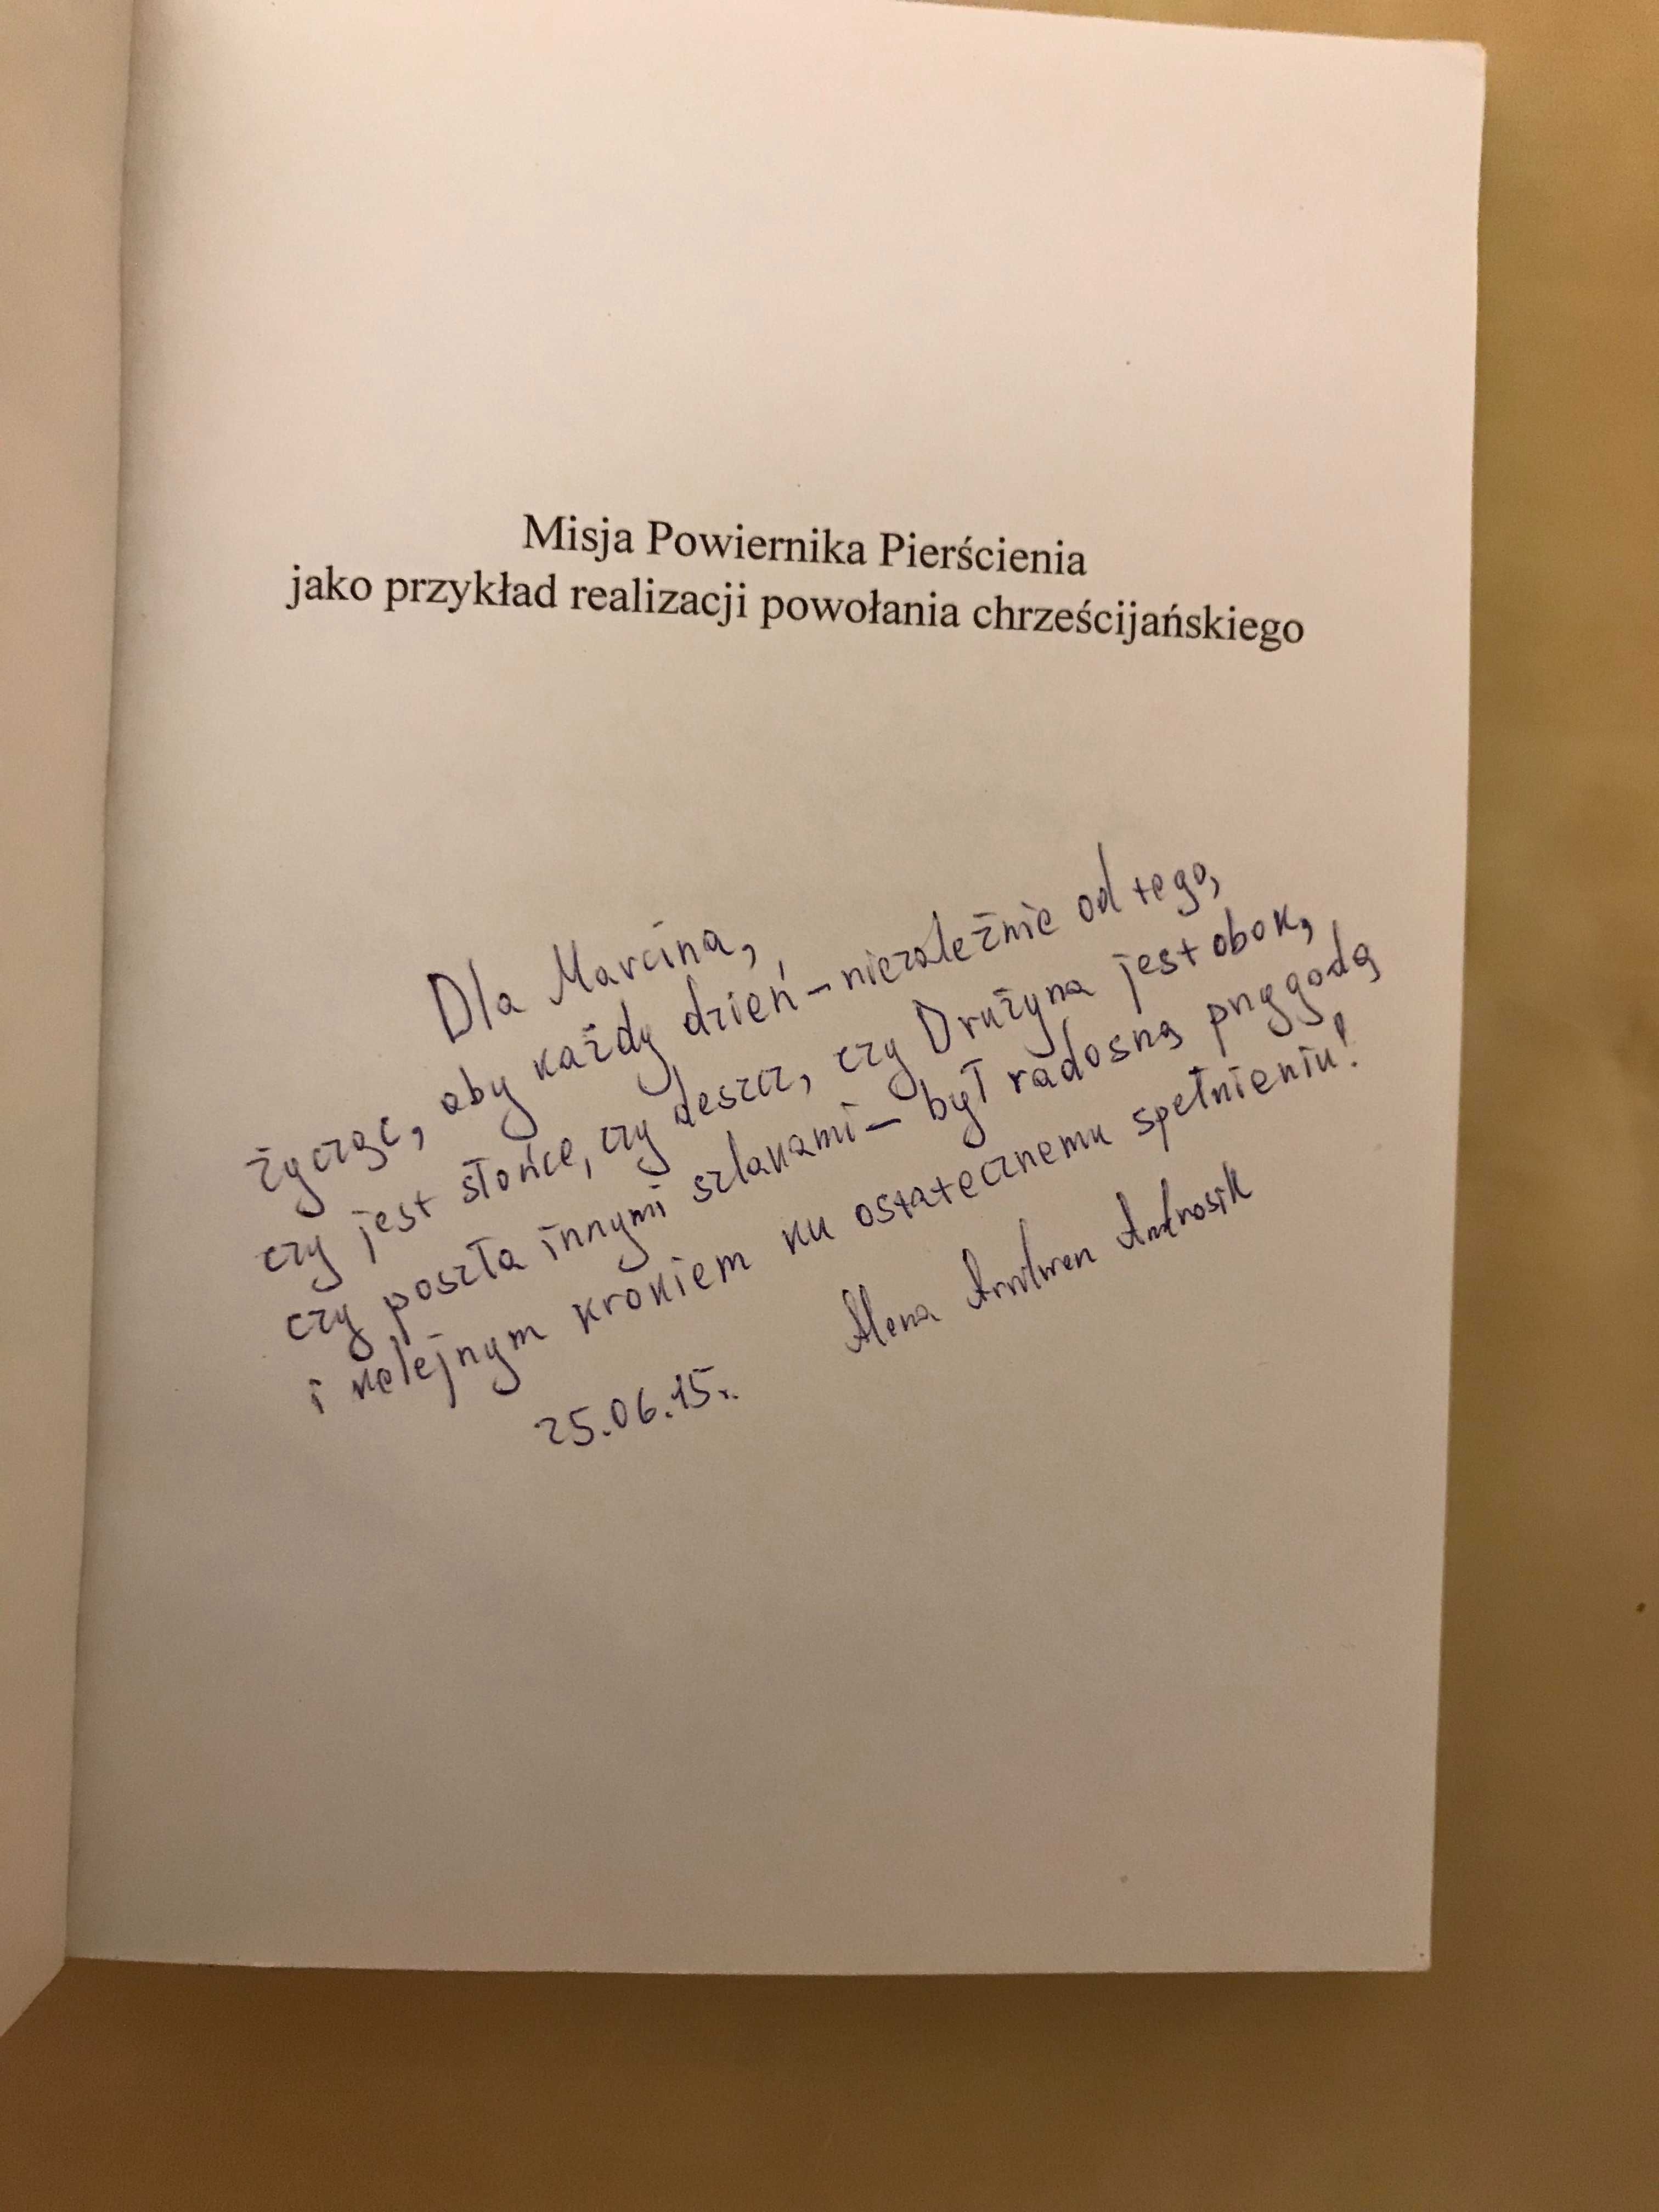 Misja Powiernika Pierścienia
jako przykład realizacji powołania chrześcijańskiego
Dla Marcina,
życząc, aby każdy dzień – niezależnie od tego,
czy jest słońce, czy deszcz, czy Drużyna jest obok,
czy poszła innymi szlakami – był radosną przygodą
i kolejnym krokiem ku ostatecznemu spełnieniu!
25.06.15r. Alena Androsik